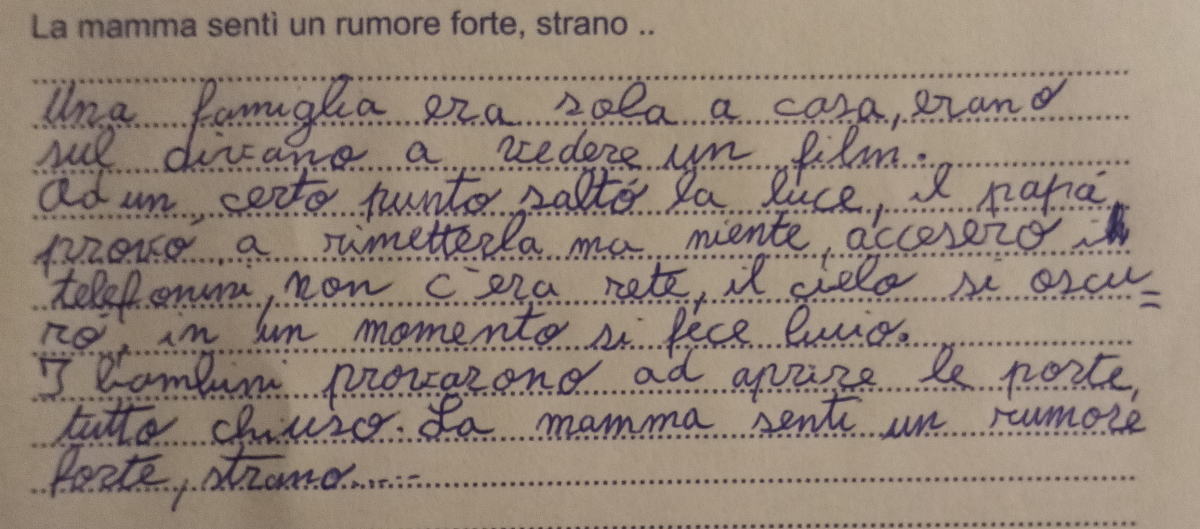 La mamma sentì un rumore forte, strano ..
Una famiglia era sola a casa, erano
sul divano a vedere un film.
Ad un certo punto saltò la luce, il papà
provò a rimetterla ma niente, accesero i
telefonini, non c'era rete, il cielo si oscu=
rò, in un momento si fece buio.
I bambini provarono ad aprire le porte,
tutto chiuso. La mamma sentì un rumore
forte, strano......